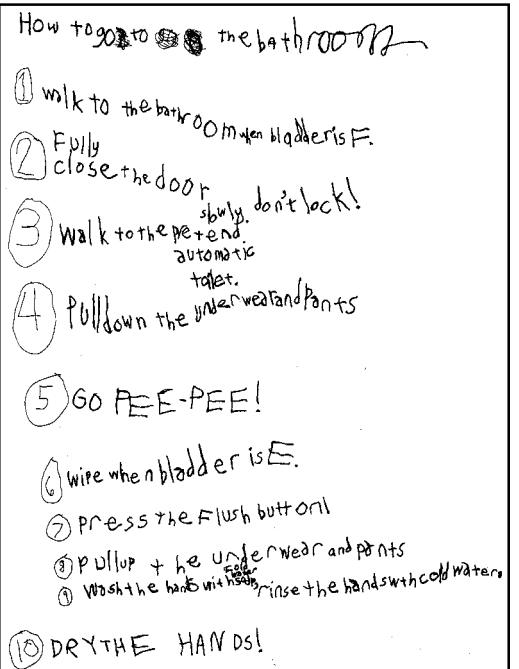 How to go to the bathroom
1 walk to the bathroom when bladder is F.
2 Fully
close the door
slowly. don't lock!
3 walk to the petend
automatic
toilet.
4 Pull down the underwear and pants
5 GO PEE-PEE!
6 wipe when bladder is E.
7 press the Flush button!
8 pull up the underwear and pants
9 wash the hands with cold water soap rinse the hands wth cold water.
10 DRY THE HANDS!